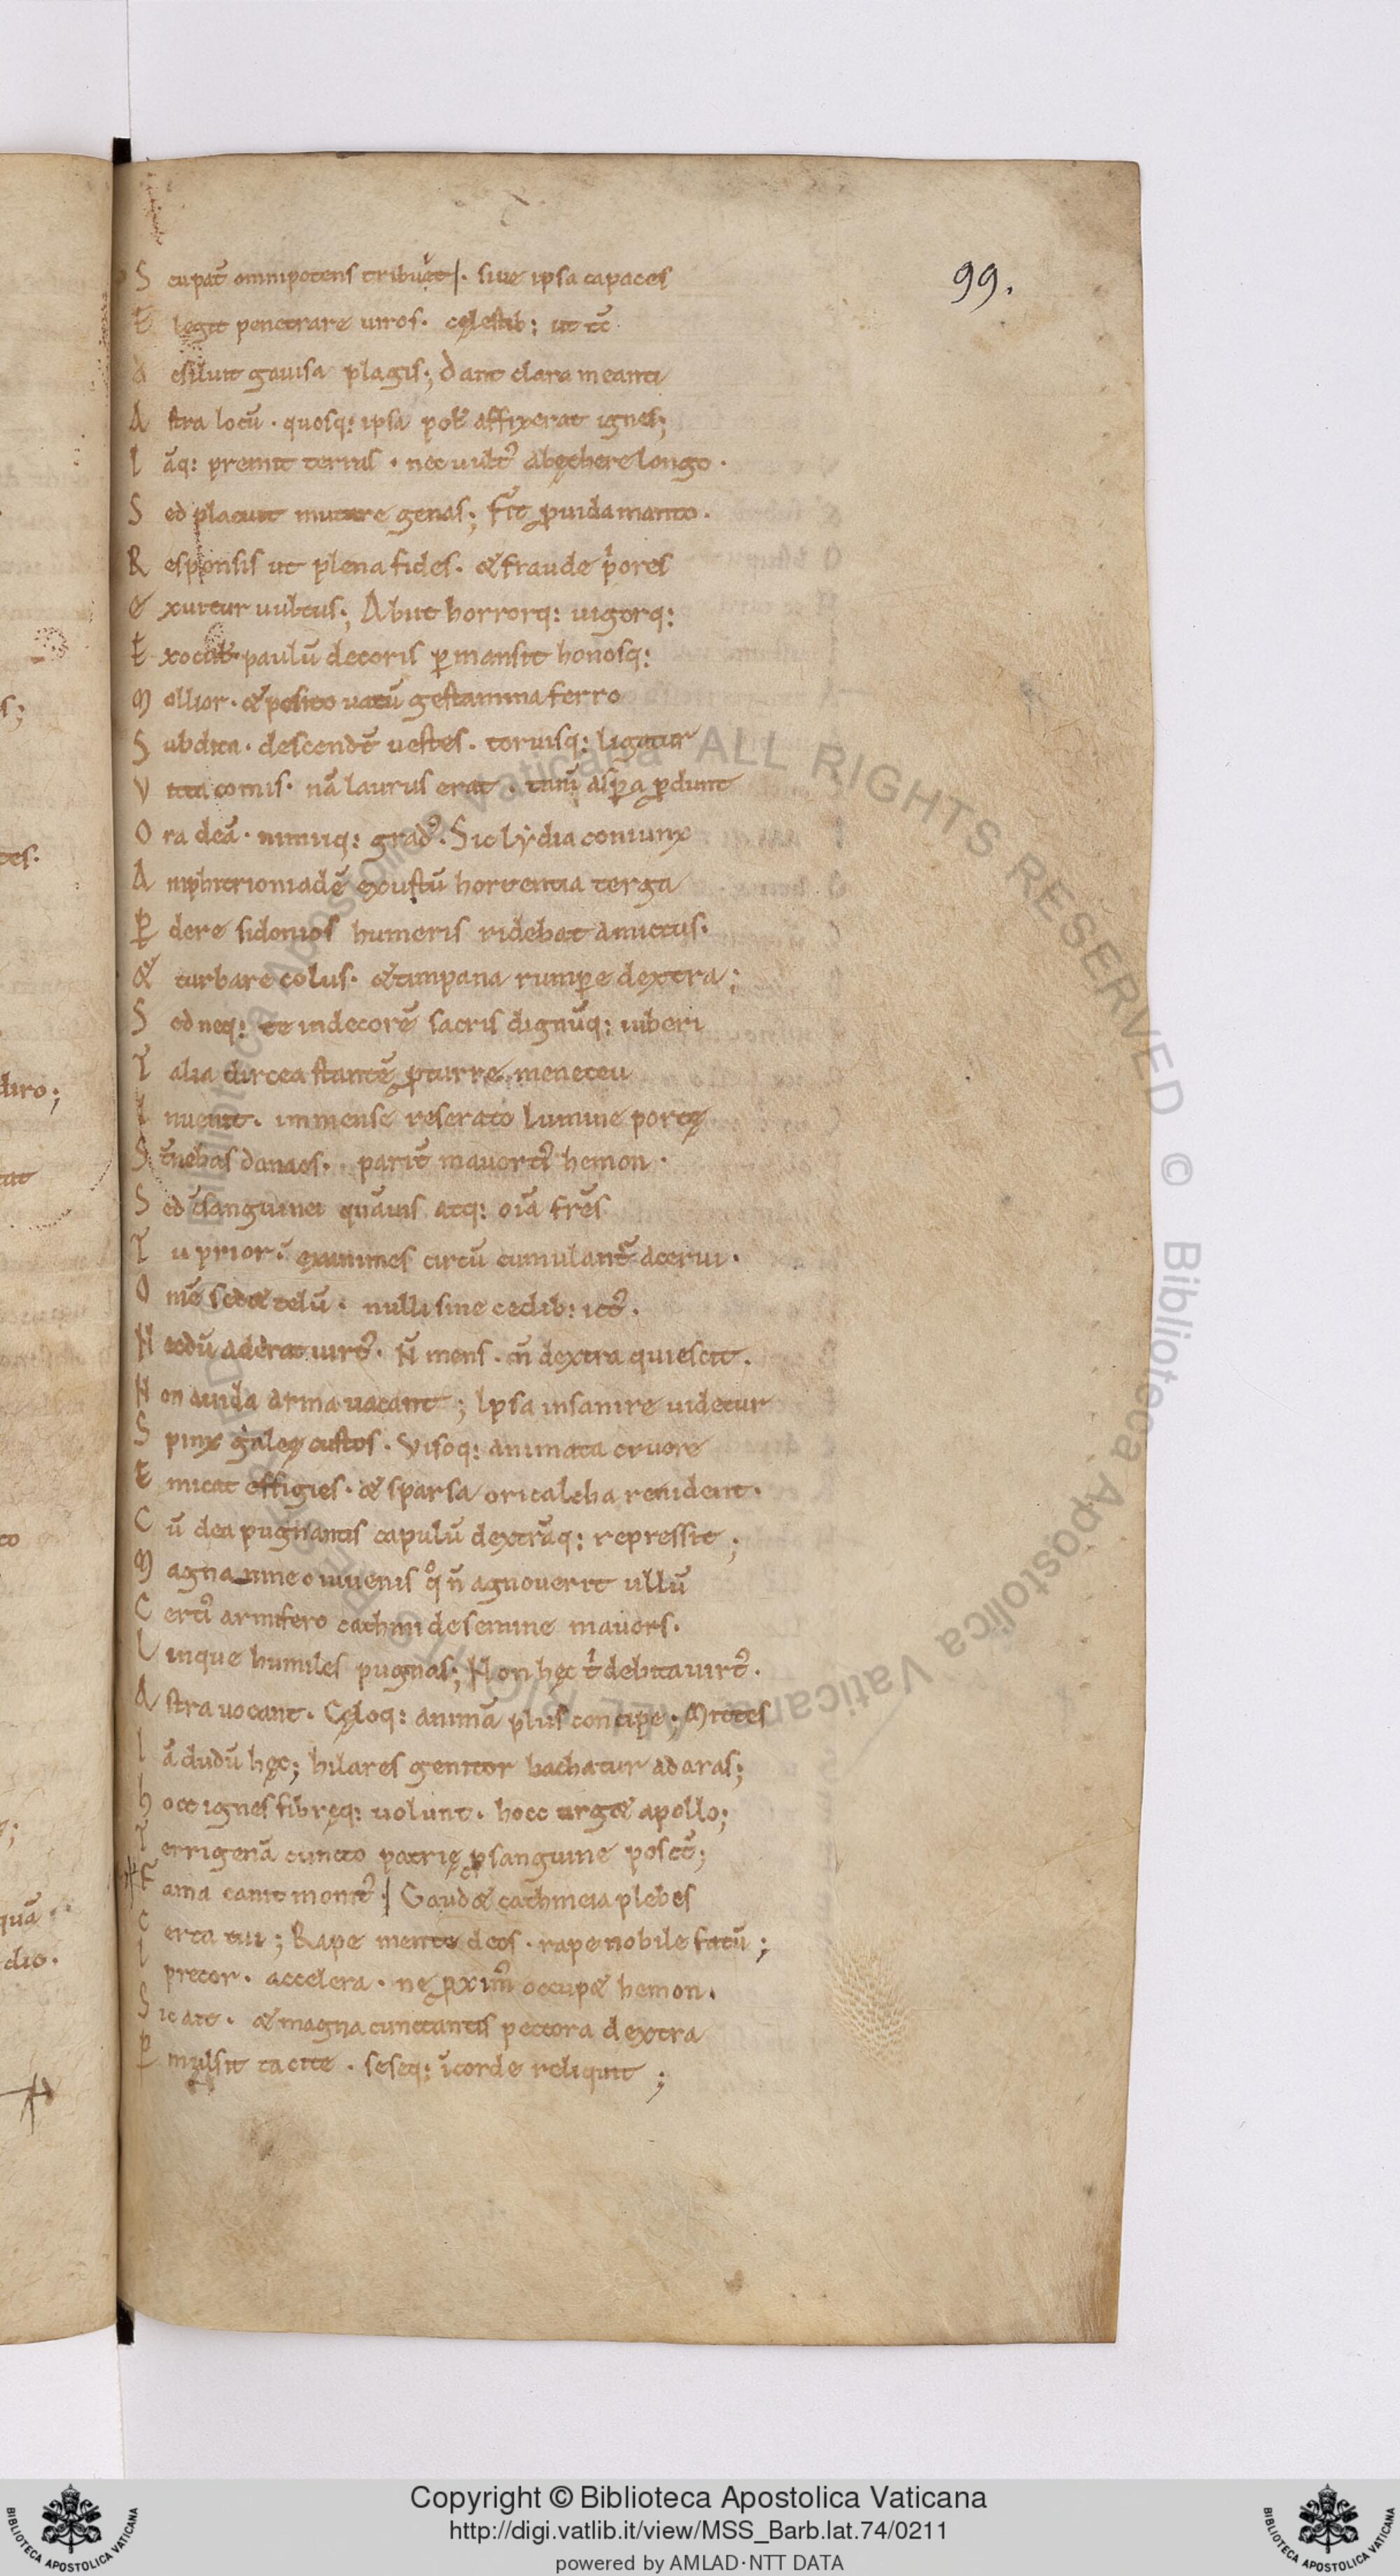 99.
S eu pat̄ omnipotens tribuat|. siue ipsa capaces
E legit penetrare uiros. cęlestib: ut tc̄
D esiluit gauisa plagis; dant clara meanti
A stra locū. quosq: ipsa poł affixerat ignes;
I āq: premit terras. nec uult᾽ abęthere longo.
S ed placuit mutare genas; fit ꝓuida manto.
R esponsis ut plena fides. & fraude p̍ores
E xuitur uultus; Abiit horrorq: uigorq:
E x oculis. paulū decoris ꝑmansit honosq:
M ollior. & posito uatū gestamina ferro
S ubdita. descendt̄ uestes. toruisq: ligatur
V itta comis. nā laurus erat. tam̄ asꝑa ꝓdunt
O ra deā. nimiiq: grad᾽. Sic lydia coniunx
A mphitrioniadē exustū horrentia terga
P dere sidonios humeris ridebat amictus.
& turbare colus. & timpana rumꝑe dextra;
S ed neq: te indecorē sacris dignūq: iuberi
T alia dircea stantē ꝓ turre meneceu
I nuenit. immense reserato lumine portę
S t̄nebas danaos. parit̄ mauorti᾽ hemon.
S ed c̄sanguinei quāuis atq: oīa fr̄es
T u prior. exanimes circū cumulant᾽ acerui.
O mē sed & telū. nulli sine cedib: ict᾽.
N ecdū aderat uirt᾽. n̄ mens. n̄ dextra quiescit.
N on auida arma uacant; Ipsa insanire uidetur
S pinx galeę custos. Visoq: animata cruore
E micat effigies. & sparsa oricalcha renident.
C ū dea pugnantis capulū dextrāq: repressit;
M agnanime o iuuenis qͦ n̄ agnouerit ullū
C erti᾽ armifero cathmi de semine mauors.
L inque humiles pugnas; Non hęc t̍ debita uirt᾽.
A stra uocant. Cęloq: animā plus concipe; Mittes
I ā dudū hęc; hilares genitor bachatur ad aras;
h oc ignes fibręq: uolunt. hoc urg& apollo;
T errigenā cuncto patrię ꝓ sanguine posct̄;
F ama canit monit᾽| Gaud& cathmeia plebes
C erta tui; Rape mente deos. rape nobile fatū;
I precor. accelera. nę ꝓxim᾽ occup& hemon.
S ic ait. & magna cunctantis pectora dextra
P mulsit tacite. seseq: ī corde reliquit;
s;
tes.
diro;
tat
co
quā
dio.
Copyright © Biblioteca Apostolica Vaticana
http://digi.vatlib.it/view/MSS_Barb.lat.74/0211
powered by AMLAD·NTT DATA
BIBLIOTECA APOSTOLICA VATICANA
BIBLIOTECA APOSTOLICA VATICANA
ALL RIGHTS RESERVED © Biblioteca Apostolica Vaticana